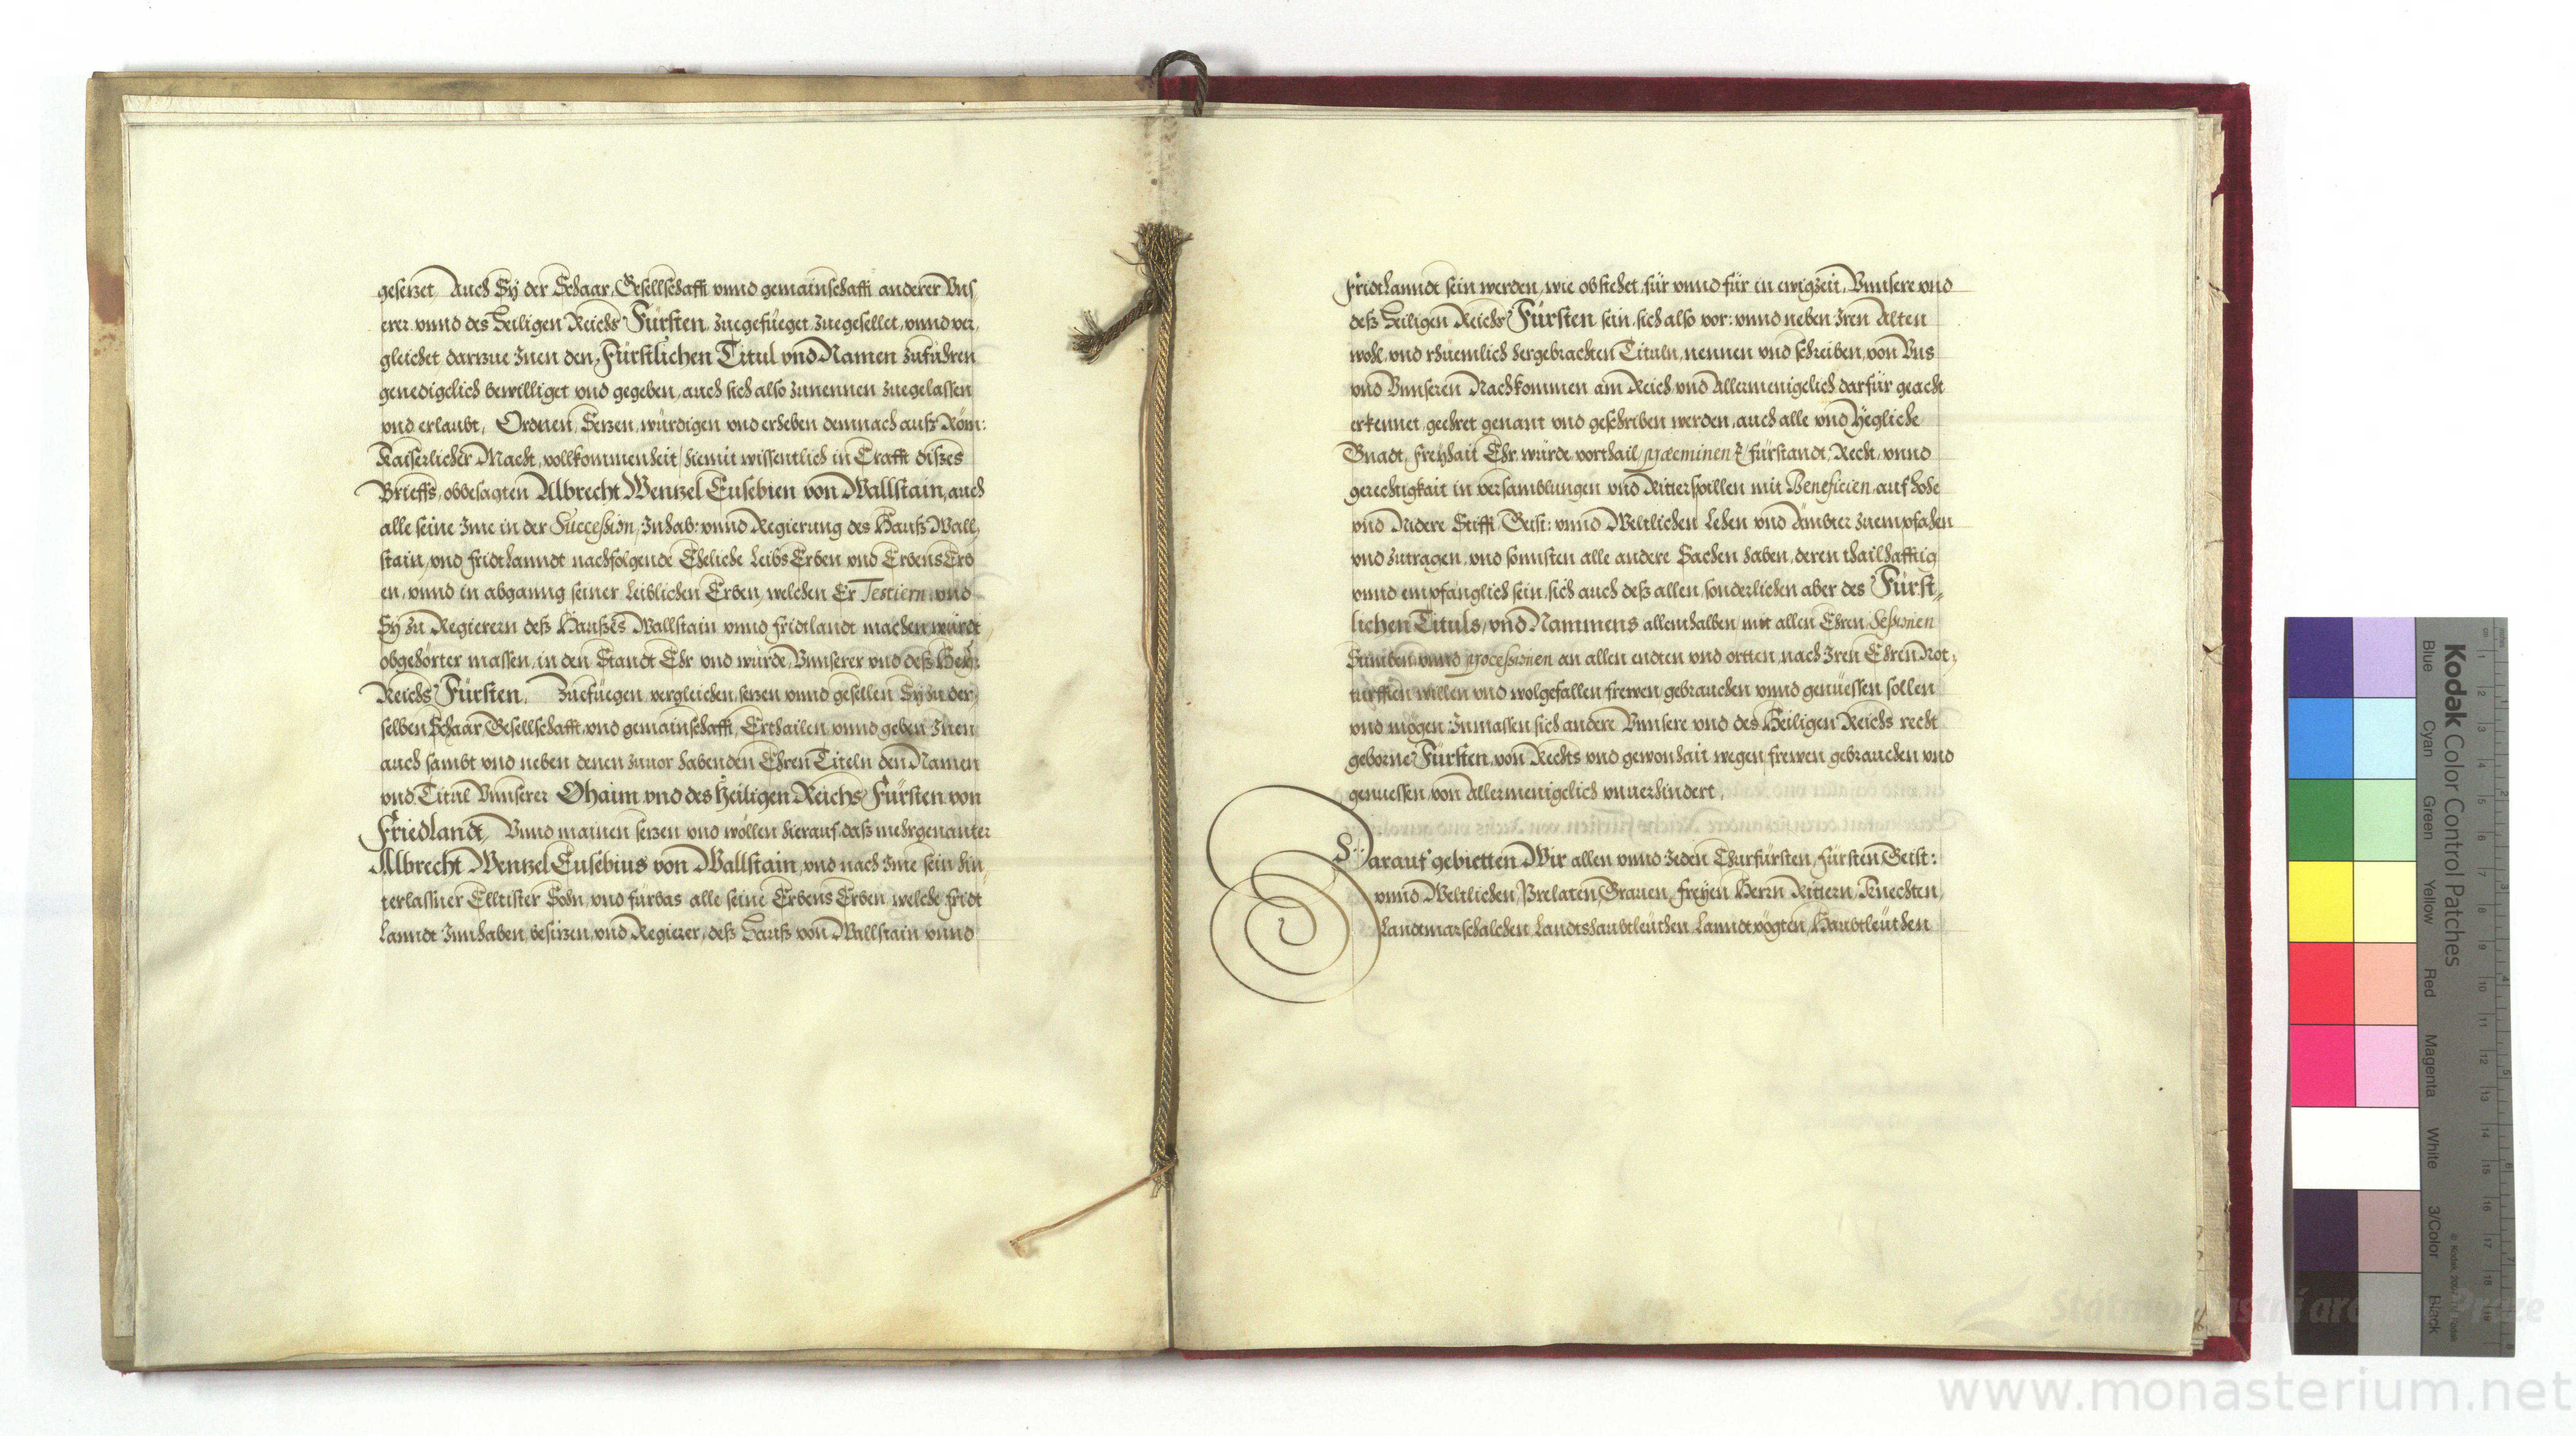 gesetzet, Auch Sÿ der Schaar, Gesellschafft vnnd gemainschafft anderer Vns
erer vnnd des Heiligen Reichs Fürsten, zuegefüeget, zuegesellet, vnnd ver,
gleichet, darzue Inen den Fürstlichen Titul vnd Namen zuführen
genedigelich bewilliget vnd gegeben, auch sich also zunennen zuegelassen
vnd erlaubt, Ordnen, Setzen, würdigen vnd erheben demnach auß Röm:
Kaiserlicher Macht, vollkommenheit, hiemit wissentlich in Crafft dises
Brieffs, obbesagten Albrecht Wentzel Eusebien von Wallstain, auch
alle seine Ime in der Succession, Inhab: vnnd Regierung des Hauß Wall,
stain, vnd fridtlanndt nachfolgende Eheliche LeibsErben vnd ErbensErb
en, vnnd in abganng seiner Leiblichen Erben, welchen Er Testiern, vnd
Sÿ zu Regierern deß Haußes Wallstain vnnd fridtlandt machen würdt,
obgehörter massen, in den Standt Ehr vnd würde, Vnnserer vnd deß Heÿ:
Reichs Fürsten, Zuefüegen, vergleichen, setzen vnnd gesellen Sÿ zu der,
selben Schaar, Gesellschafft, vnd gemainschafft, Erthailen, vnnd geben Inen
auch sambt vnd neben denen zuuor habenden Ehren Titeln den Namen
vnd Titul Vnnserer Ohaim, vnd des Heiligen Reichs Fürsten von
Friedlandt, Vnnd mainen setzen vnd wöllen hierauf, daß mehrgenanter
Albrecht Wentzel Eusebius von Wallstain, vnd nach Ime sein hin,
terlassner Elltister Sohn, vnd fürbas alle seine Erbens Erben, welche fridt
lanndt Innhaben, besitzen, vnd Regierer, deß Hauß von Wallstain vnnd
Fridtlanndt sein werden, wie obstehet, für vnnd für in ewigzeit, Vnnsere vnd
deß Heiligen Reichs Fürsten sein, sich also vor: vnnd neben Iren Alten
wohl, vnd rhüemlich hergebrachten Tituln, nennen vnd schreiben, von Vns
vnd Vnnseren Nachkommen am Reich vnd Allermenigelich darfür geacht
erkennet, geehret genant vnd geschriben werden, auch alle vnd Yegliche
Gnadt, freÿhait Ehr, würde, vorthail, præminentz, fürstandt, Recht, vnnd
gerechtigkait in versamblungen vnd Ritterspillen mit Beneficien, auf hohe
vnd Nidere Stifft, Geist: vnnd Weltlichen Lehen vnd Ämbter zuempfahen
vnd zutragen, vnd sonnsten alle andere Sachen haben, deren thailhafftig
vnnd empfänglich sein, sich auch deß allen, sonderlichen aber des Fürst,
lichen Tituls, vnd Nammens allenthalben, mit allen Ehren Sessionen
Stimben, vnnd processionen an allen endten vnd ortten, nach Iren Ehren Not,
turfften willen vnd wolgefallen frewen, gebrauchen vnnd genüessen sollen
vnd mögen, Inmassen sich andere Vnnsere vnd des Heiligen Reichs recht
geborne Fürsten, von Rechts vnd gewonhait wegen, frewen gebrauchen vnd
genuessen, von Allermenigelich vnuerhindert,
Darauf gebietten Wir allen vnnd Jeden Churfürsten, fürsten, Geist:
vnnd Weltlichen, Prelaten, Grauen, freÿen Herrn Rittern, Knechten,
Landtmarschalchen Landtshaubtleüthen, Lanndtvögten, Haubtleüthen
Kodak Color Control Patches
Blue Cyan Green Yellow Red Magenta White 3/Color Black
www.monasterium.net